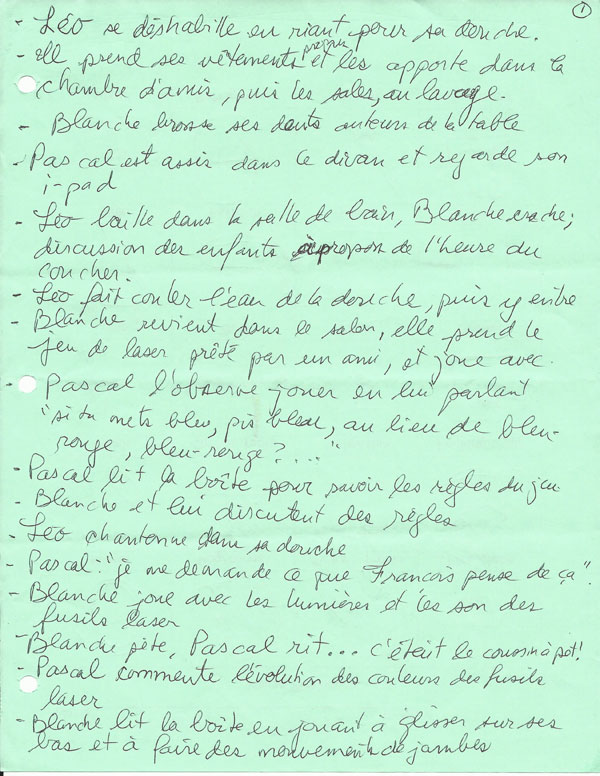 1
- Léo se déshabille en riant pour sa douche.
- Ell prend ses vêtements propres et les apporte dans la
chambre d'amis, puis les sales, au lavage.
- Blanche brosse ses dents autours de la table
- Pascal est assis dans le divan et regarde son
i-pad
- Léo baille dans la salle de bain, Blanche crache;
discussion des enfants àpropos de l'heure du
coucher.
- Léo fait couler l'eau de la douche, puis y entre
- Blanche revient dans le salon, elle prend le
jeu de laser prêté par un ami, et joue avec.
- Pascal l'observe jouer en lui parlant
"si tu mets bleu, pis bleu, au lieu de bleu-
rouge, bleu-rouge?...."
- Pascal lit la boîte pour savoir les règles du jeu
- Blanche et lui discutent des règles
- Léo chantonne dans sa douche
- Pascal: "je me demande ce que Francois pense de ça".
- Blanche joue avec les lumières et les son des
fusils laser
- Blanche pète, Pascal rit... c'était le coussin à pèt!
- Pascal commente l'évolution des couleurs des fusils
laser
- Blanche lit la boîte en jouant à glisser sur ses
bas et à faire des mouvements de jambes